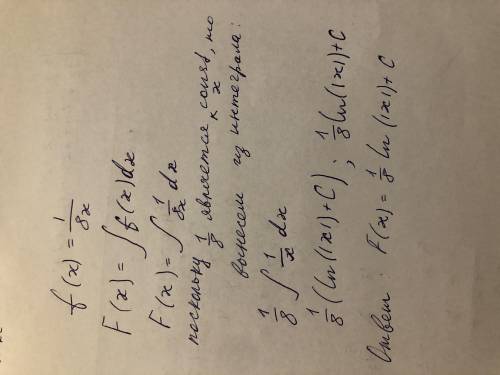 f(x) = 1/8x
F(x) = ∫ f(x)dx
F(x) = ∫ 1/8x dx
поскольку 1/8 является const, к x, то
вынесем из интеграла:
1/8 ∫ 1/x dx
1/8 (ln(|x|)+C) ; 1/8 ln(|x|)+C
Ответ : F(x) = 1/8 ln(|x|)+C